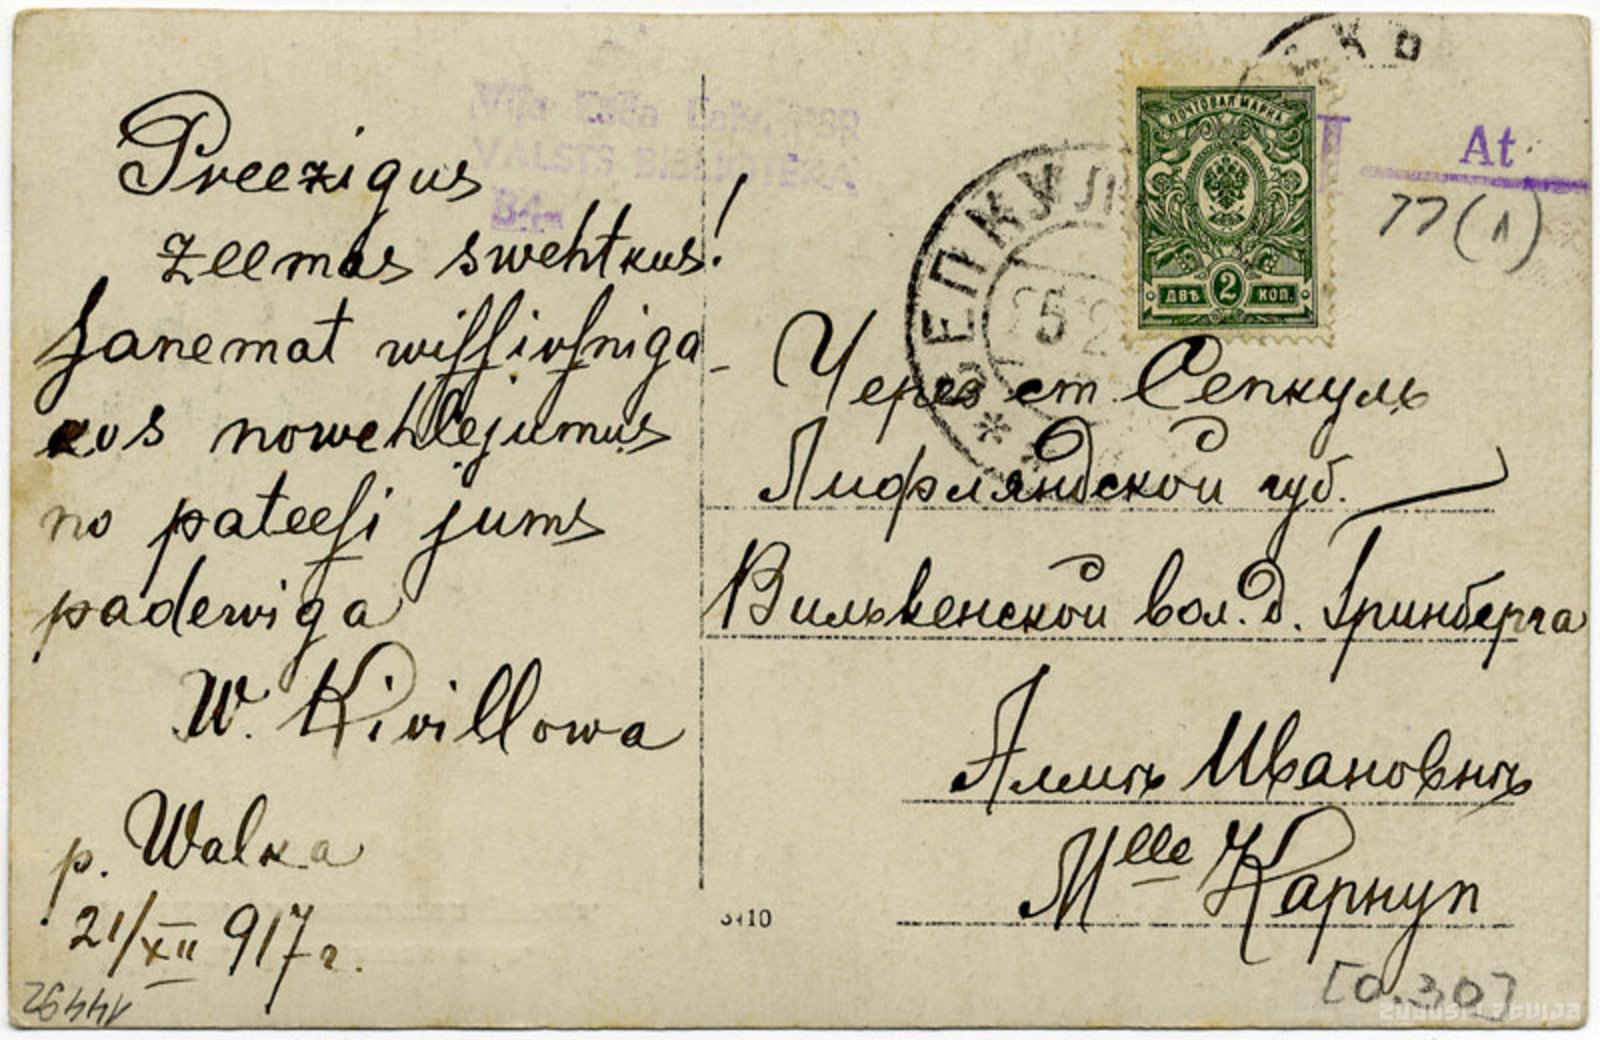 Preezigus
zeemas swehtkus!
Saņemat wiſſirſniga-
kos nowehlejumus
no pateeſi jums
padewiga
W. Kirillowa
p. Walka
21/XII 917 г.
14492
Vīļa Lāča Latv. PSR
VALSTS BIBLIOTĒKA
84
ПОЧТОВАЯ МАРКА
2
ДВѢ КОП.
ЗЕПКУЛ
25 12
At
77(1)
Через ст. Сепкуль
Лифляндской губ.
Вилькенской вол. д. Гринберга
Аллиѣ Ивановнѣ
Mlle Карнуп
3410
[0.30]
zudusi latvija